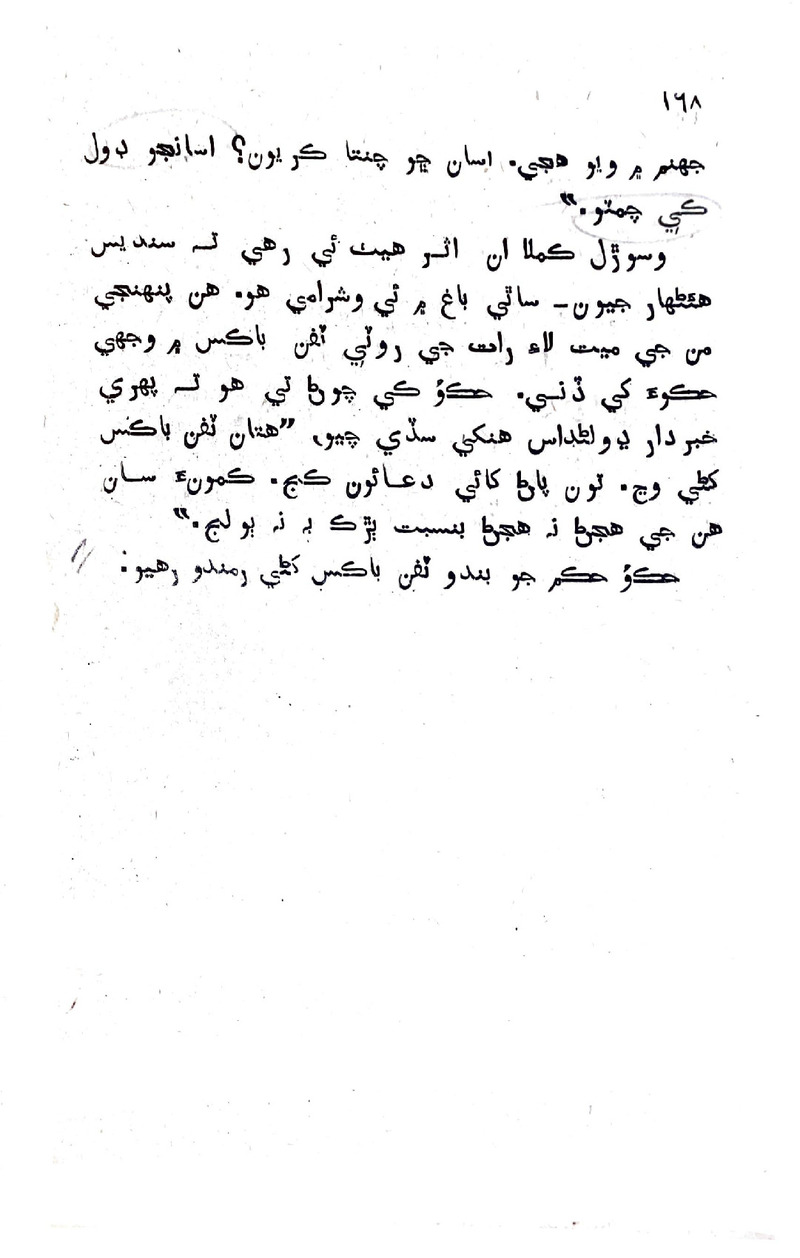 ١٦٨
جهنم ۾ ويو هجي. اسان ڇو چنتا ڪريون؟ اسانجو ڍول
ڪي چمٽو.”
وسوڙل ڪملا ان اثر هيٺ ئي رهي تہ سنديس
هئڻهار جيون_ ساٿي باغ ۾ ئي وشرامي هو. هن پنهنجي
من جي ميت لاءِ رات جي روٽي ٽفن باڪس ۾ وجهي
حڪوءَ کي ڏني. حڪوُ ڪي چوڻ تي هو تہ پهري
خبردار ڍولڻداس هنکي سڏي چيو، ”هتان ٽفن باڪس
کڻي وڃ. تون پاڻ کائي دعائون ڪج. ڪمونءَ سان
هن جي هجڻ نہ هجڻ بنسبت ٻڙڪ بہ نہ ٻولج.”
حڪوُ حڪم جو بندو ٽفن باڪس کڻي رمندو رهيو: